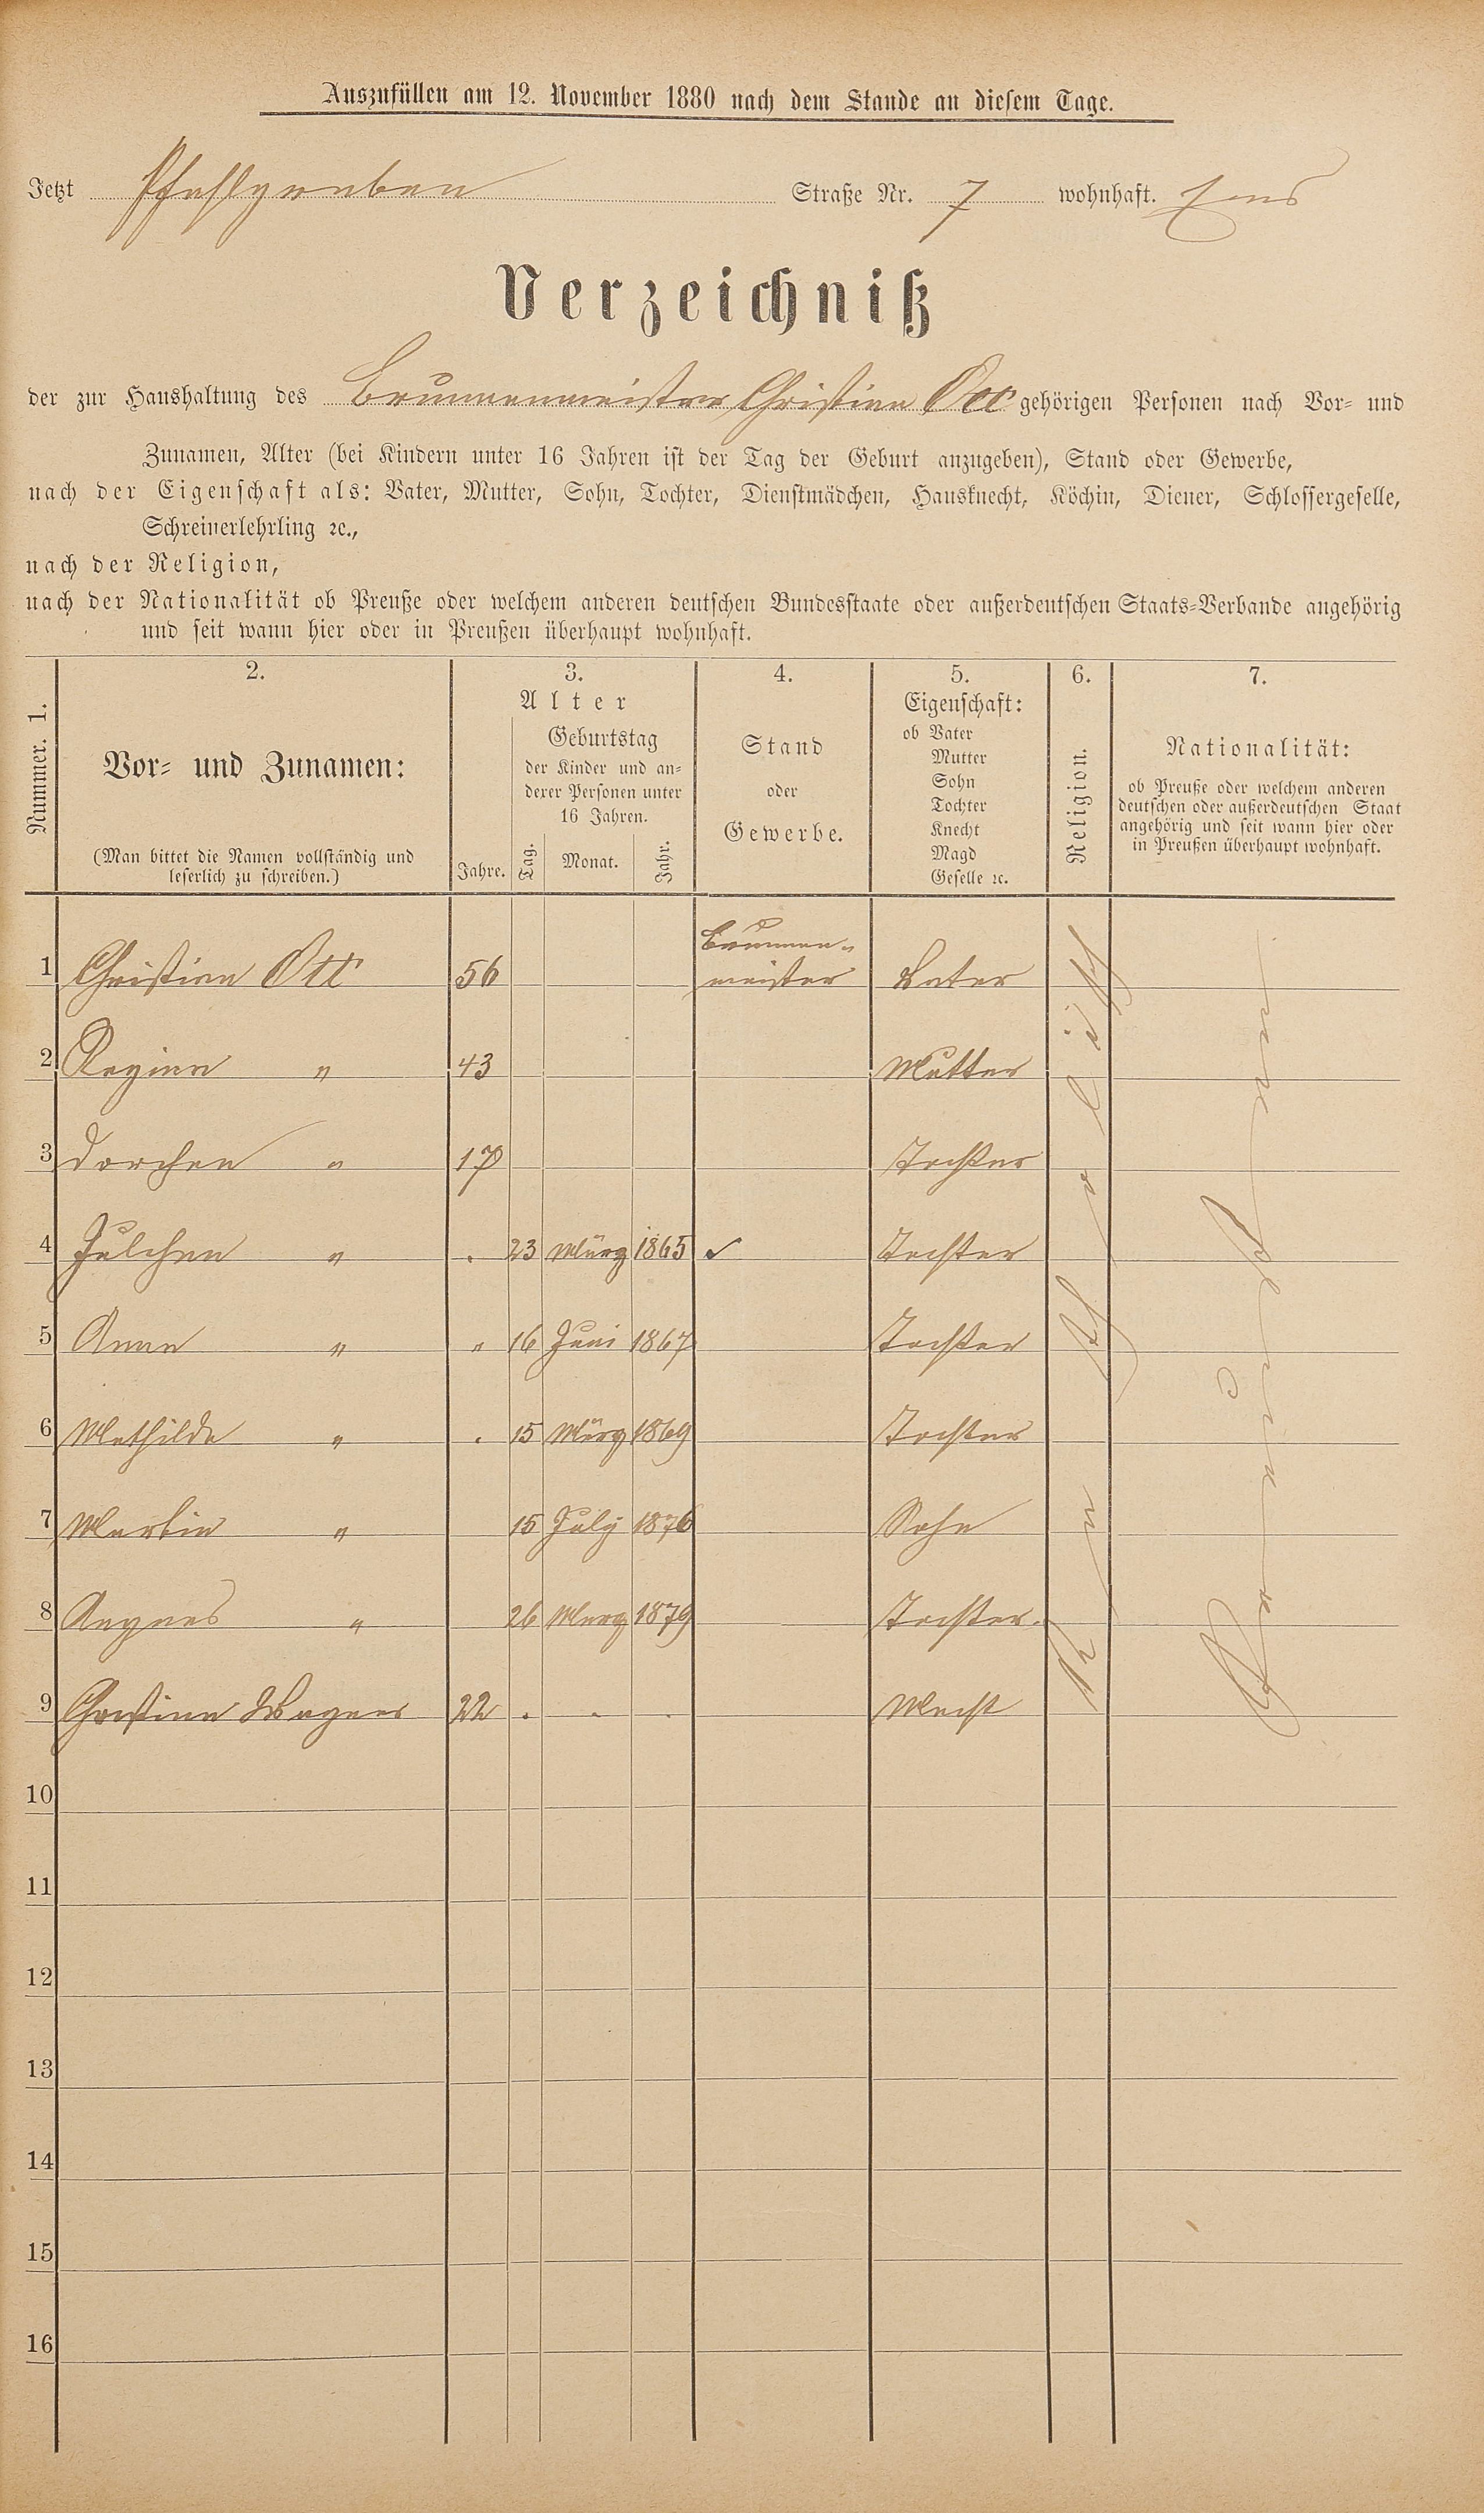 Auszufüllen am 12. November 1880 nach dem Stande an diesem Tage.
Jetzt Pfahlgraben Straße Nr. 7 wohnhaft. Ems
Verzeichniß
der zur Haushaltung des Brunnenmeister Christian Ott gehörigen Personen nach Vor- und
Zunamen, Alter (bei Kindern unter 16 Jahren ist der Tag der Geburt anzugeben), Stand oder Gewerbe,
nach der Eigenschaft als: Vater, Mutter, Sohn, Tochter, Dienstmädchen, Hausknecht, Köchin, Diener, Schlossergeselle,
Schreinerlehrling ꝛc.,
nach der Religion,
nach der Nationalität ob Preuße oder welchem anderen deutschen Bundesstaate oder außerdeutschen Staats-Verbande angehörig
und seit wann hier oder in Preußen überhaupt wohnhaft.
Nummer. 1.
2.
Vor- und Zunamen:
(Man bittet die Namen vollständig und
leserlich zu schreiben.)
3.
Alter
Jahre.
Geburtstag
der Kinder und an-
derer Personen unter
16 Jahren.
Tag. Monat. Jahr.
4.
Stand
oder
Gewerbe.
5.
Eigenschaft:
ob Vater
Mutter
Sohn
Tochter
Knecht
Magd
Geselle ꝛc.
6.
Religion.
7.
Nationalität:
ob Preuße oder welchem anderen
deutschen oder außerdeutschen Staat
angehörig und seit wann hier oder
in Preußen überhaupt wohnhaft.
1 Christian Ott 56 Brunnen-
meister Vater
2 Regina " 43 Mutter
3 Dorchen " 17 Tochter
4 Julchen " . 23 März 1865 Tochter
5 Anna " " 16 Juni 1867 Tochter
6 Mathilde " . 15 März 1869 Tochter
7 Martin " 15 July 1876 Sohn
8 Angnes " 26 Merz 1879 Tochter.
9 Christina Wagner 22 . . . Macht
Katholisch
Preußen
10
11
12
13
14
15
16